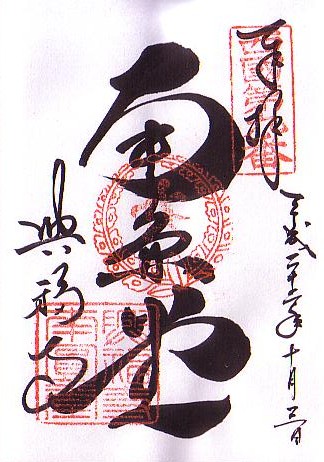 奉拝
平成二十二年十月
南圓堂
興福寺